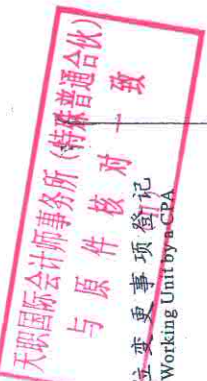 天职国际会计师事务所（特殊普通合伙）
与原件核对一致
位变更事项登记
Working Unit by a CPA